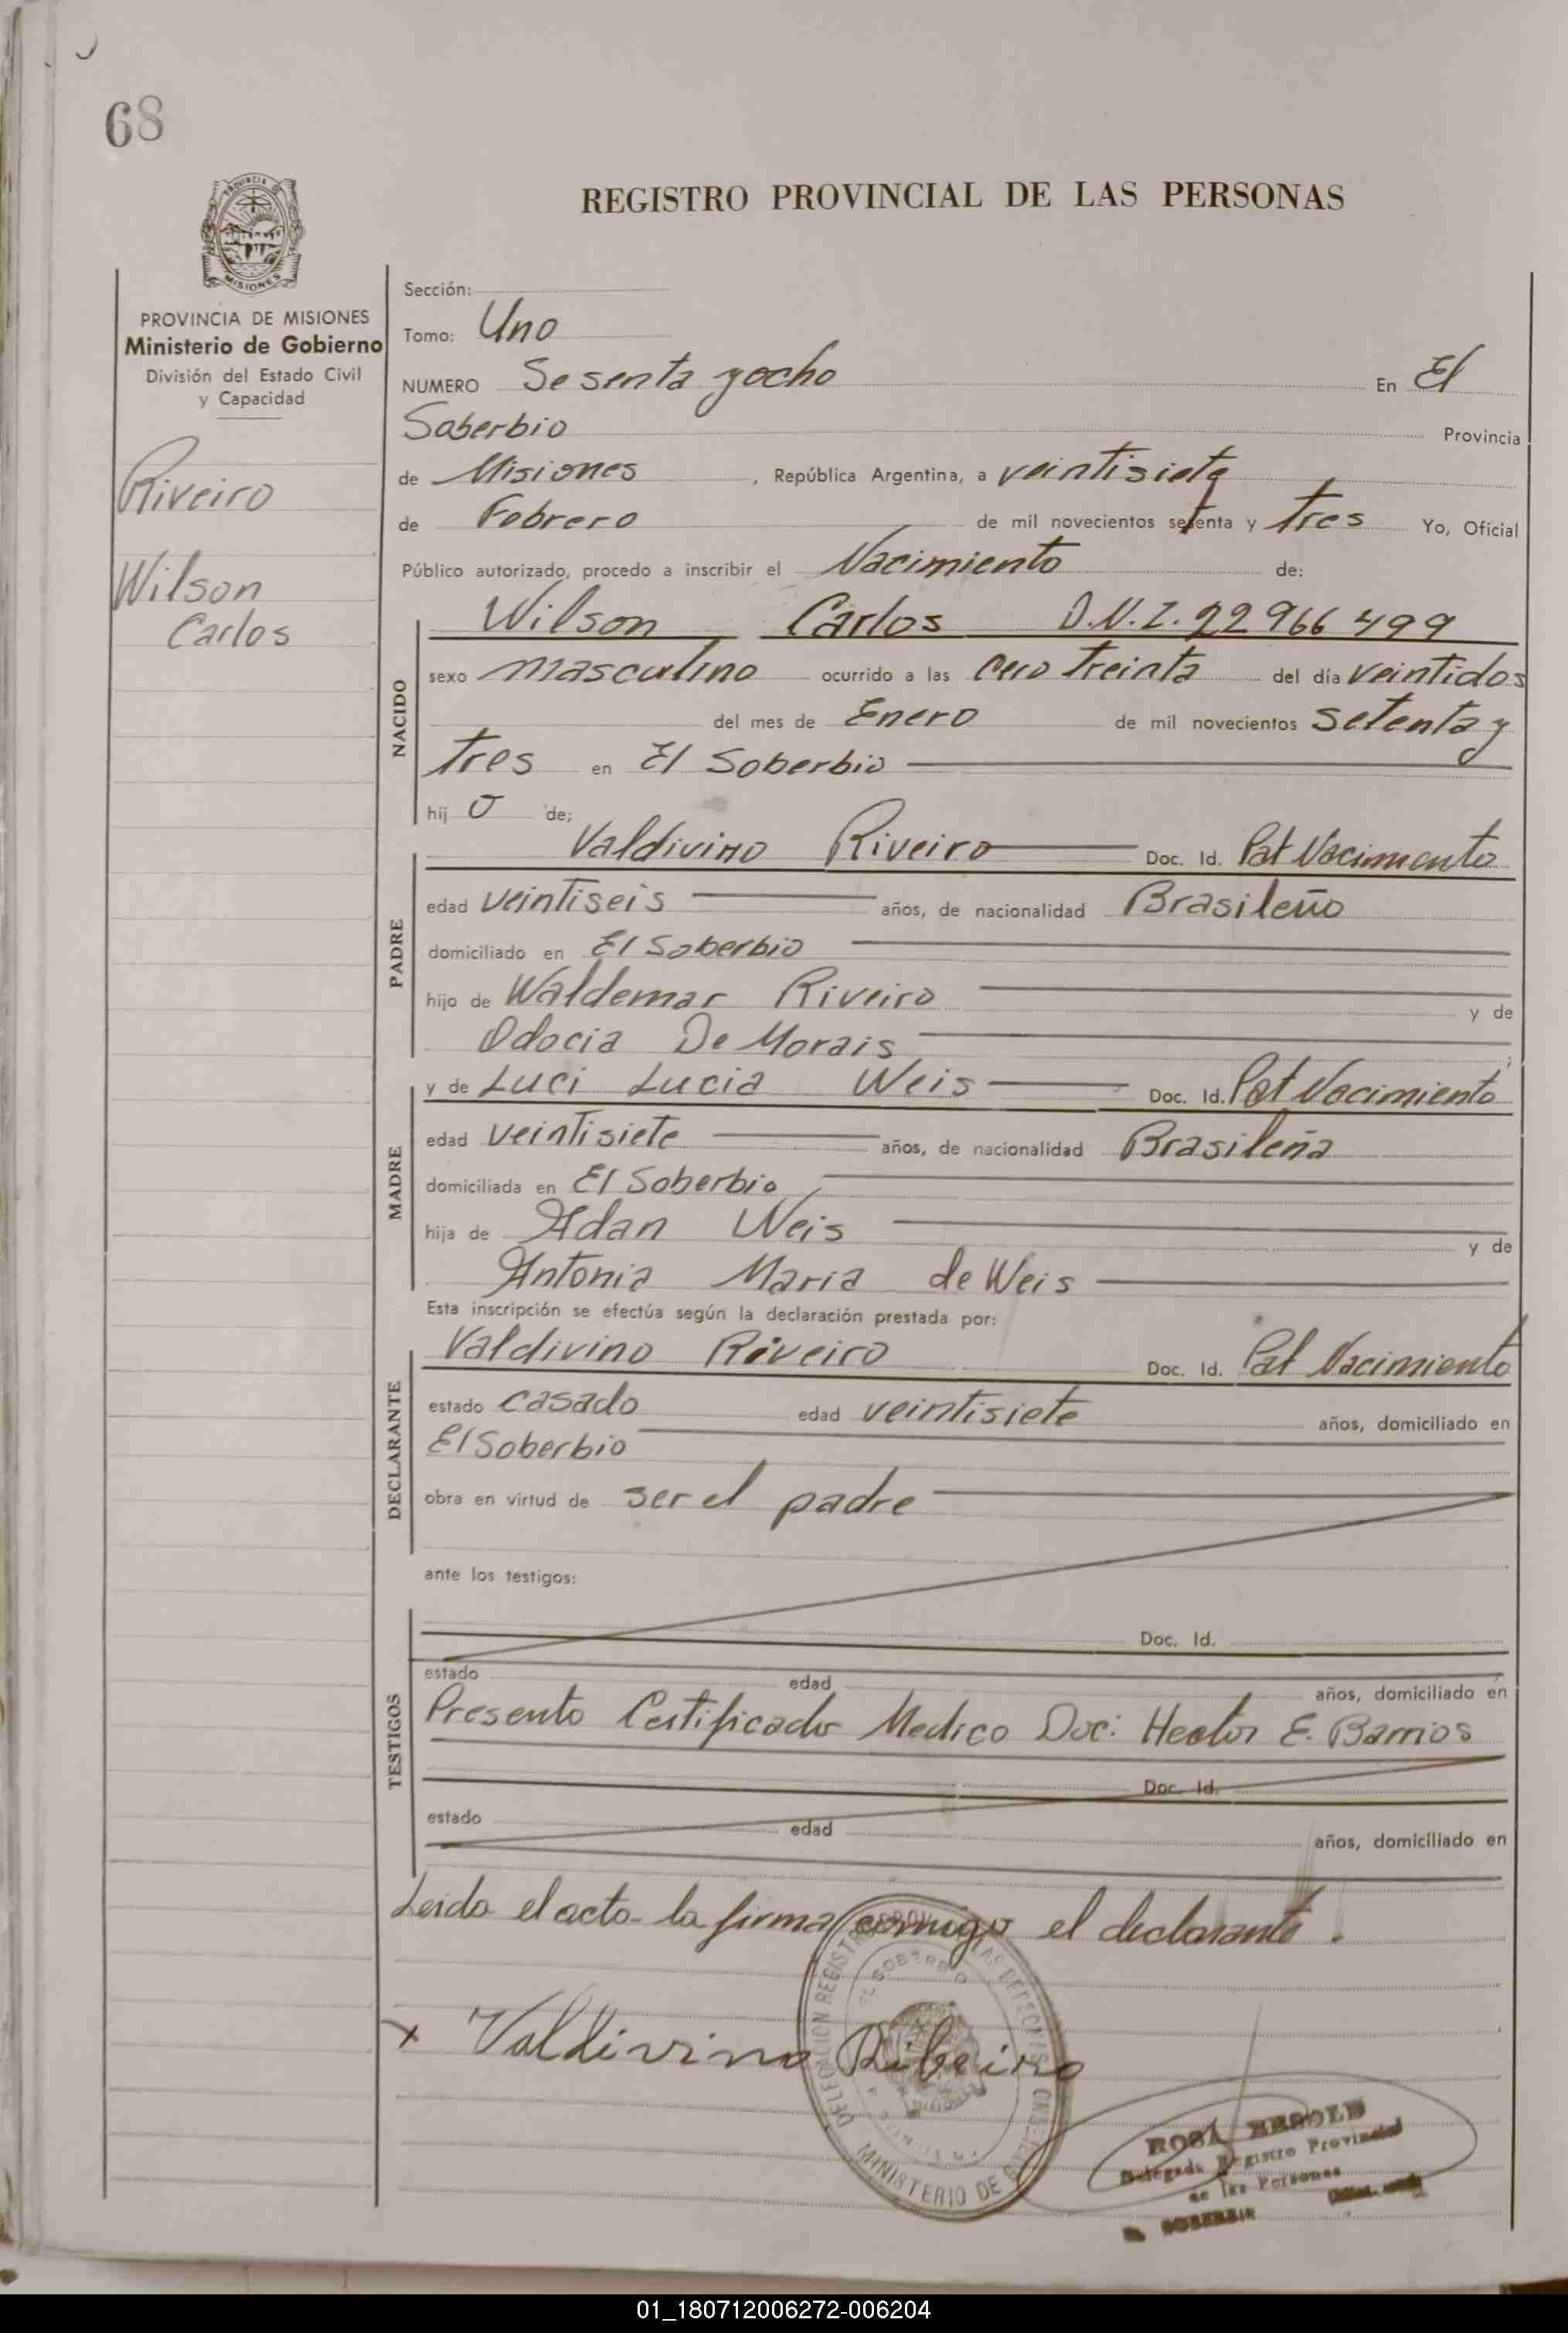 68
REGISTRO PROVINCIAL DE LAS PERSONAS
PROVINCIA DE
MISIONES
PROVINCIA DE MISIONES
Ministerio de Gobierno
División del Estado Civil
y Capacidad
Riveiro
Wilson
Carlos
Sección:
Tomo: Uno
NUMERO Sesenta y ocho En El
Soberbio Provincia
de Misiones, República Argentina, a veintisiete
de Febrero de mil novecientos setenta y tres Yo, Oficial
Público autorizado, procedo a inscribir el Nacimiento de:
NACIDO
Wilson Carlos D.N.I. 22966499
sexo masculino ocurrido a las cero treinta del día veintidos
del mes de Enero de mil novecientos setenta y
tres en El Soberbio
hij o de;
PADRE
Valdivino Riveiro Doc. Id. Pat Nacimiento
edad veintiseis años, de nacionalidad Brasileño
domiciliado en El Soberbio
hijo de Waldemar Riveiro y de
Odocia De Morais
MADRE
y de Luci Lucia Weis Doc. Id. Pat Nacimiento
edad veintisiete años, de nacionalidad Brasileña
domiciliada en El Soberbio
hija de Adan Weis y de
Antonia Maria de Weis
Esta inscripción se efectúa según la declaración prestada por:
DECLARANTE
Valdivino Riveiro Doc. Id. Pat Nacimiento
estado casado edad veintisiete años, domiciliado en
El Soberbio
obra en virtud de ser el padre
ante los testigos:
TESTIGOS
Doc. Id.
estado edad años, domiciliado en
Presento Certificado Medico Doc: Hector E. Barrios
Doc. Id.
estado edad años, domiciliado en
Leida el acta la firma comigo el declarante.
x Valdivino Ribeiro
DELEGACION REGISTRO
EL SOBERBIO
MINISTERIO DE
ROSA
Delegada Registro Provincial
de las Personas
SOBERBIO
01_180712006272-006204